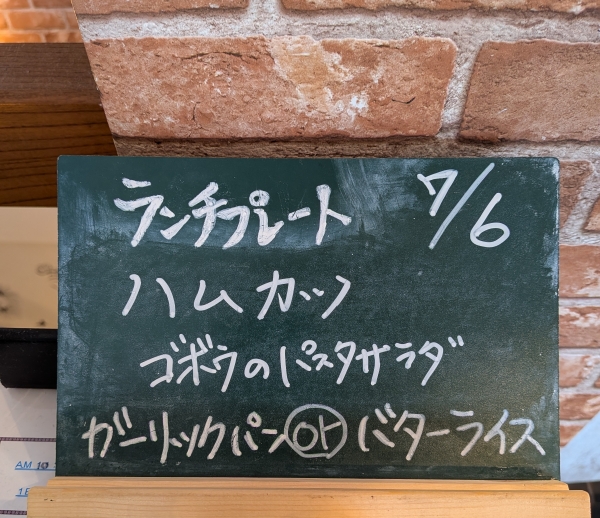 ランチプレート 7/6
ハムカツ
ゴボウのパスタサラダ
ガーリックパン or バターライス
AM 10